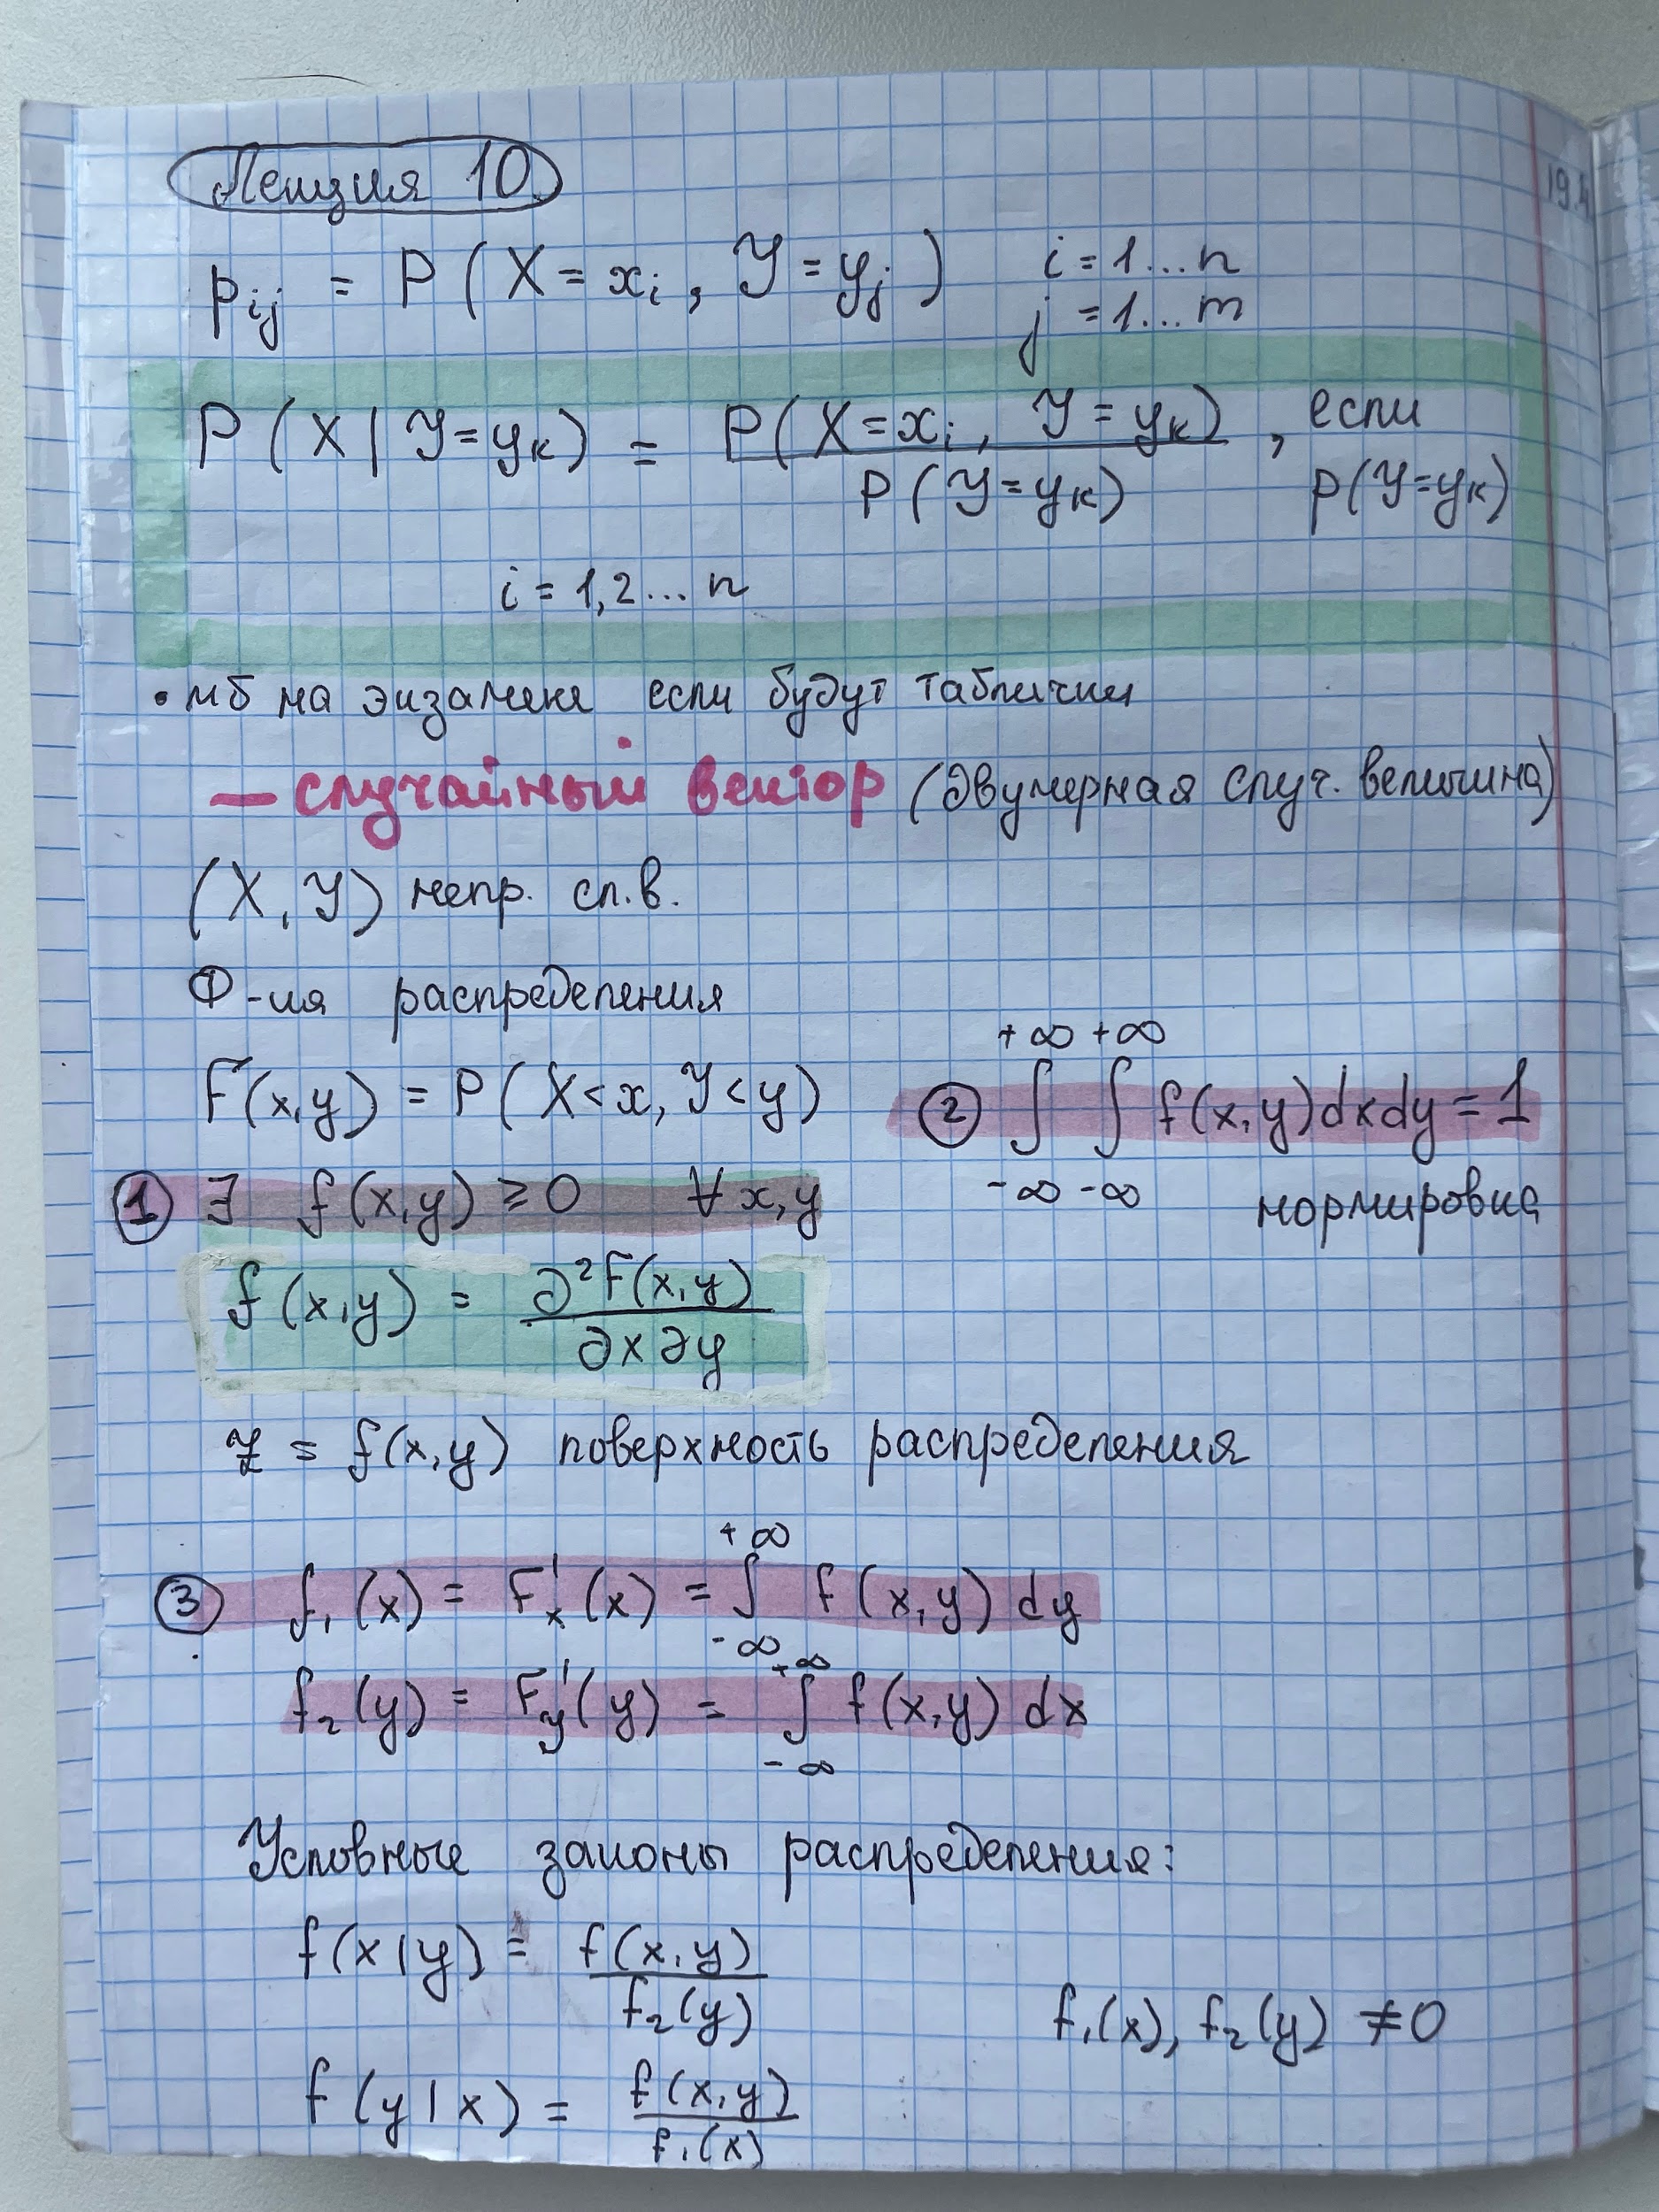 Лекция 10
p_ij = P ( X = x_i , Y = y_j )    i = 1...n
j = 1...m
P ( X | Y = y_k ) = P ( X = x_i , Y = y_k ) / P ( Y = y_k ) , если P ( Y = y_k )
i = 1,2...n
• мб на экзамене если будут таблички
— случайный вектор (двумерная случ. величина)
(X, Y) непр. сл.в.
Ф-ия распределения
F(x,y) = P ( X < x, Y < y )
② ∫_{-∞}^{+∞} ∫_{-∞}^{+∞} f(x,y)dxdy = 1
нормировка
① ∃ f(x,y) ≥ 0 ∀ x,y
f(x,y) = ∂²F(x,y) / ∂x∂y
z = f(x,y) поверхность распределения
③ f₁(x) = F'_x(x) = ∫_{-∞}^{+∞} f(x,y) dy
f₂(y) = F'_y(y) = ∫_{-∞}^{+∞} f(x,y) dx
Условные законы распределения:
f(x|y) = f(x,y) / f₂(y)
f₁(x), f₂(y) ≠ 0
f(y|x) = f(x,y) / f₁(x)